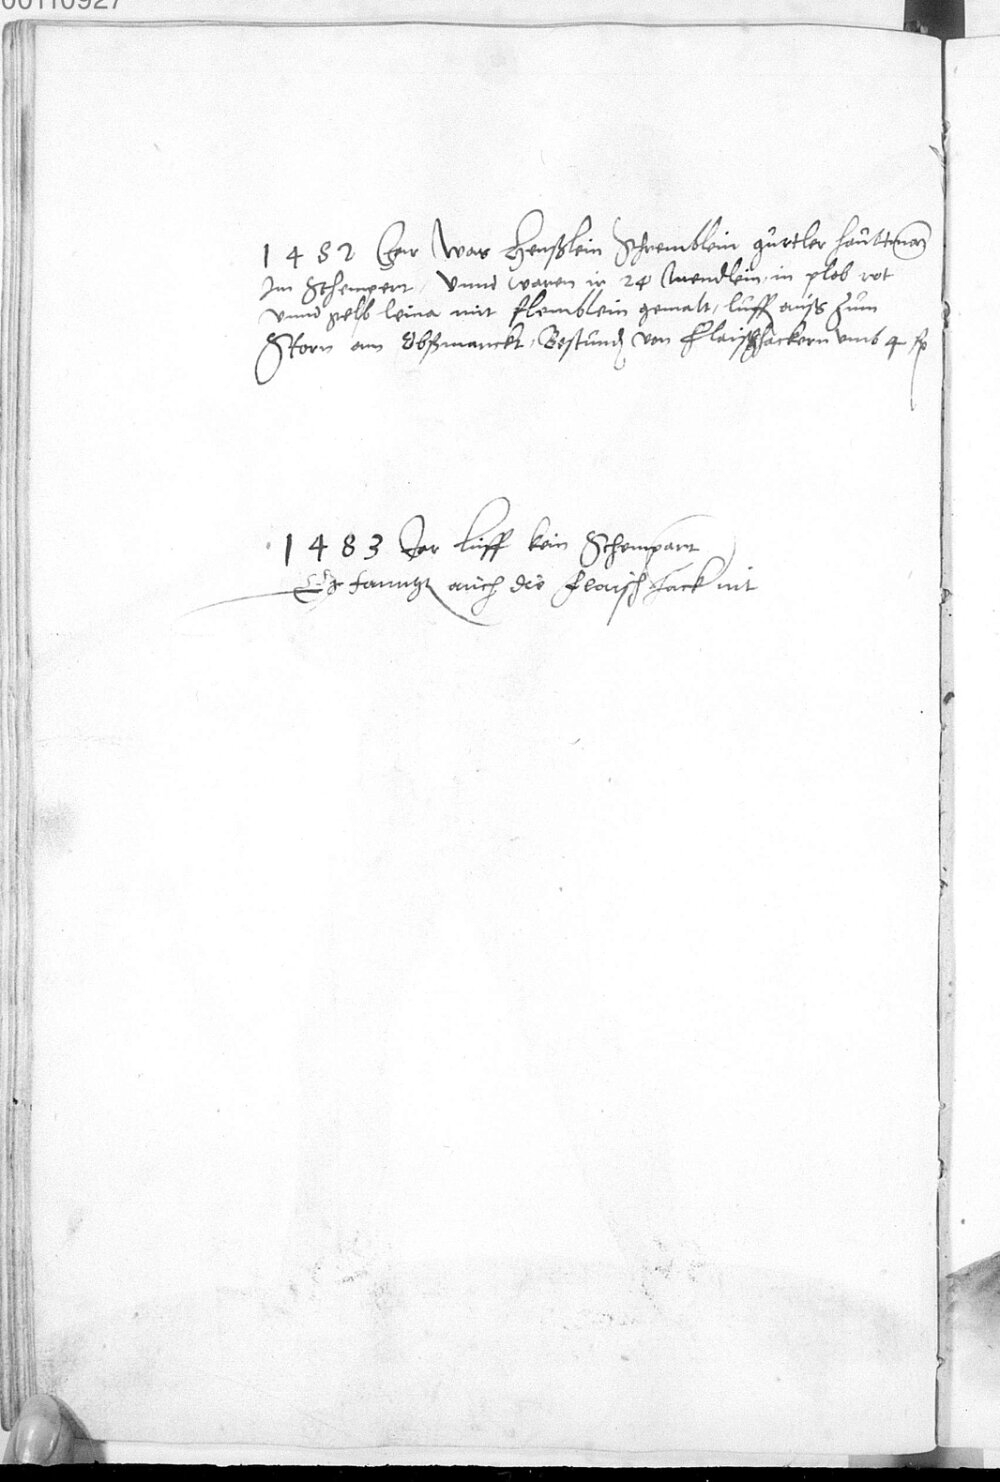 00110927
1482 Jar War Henßlein Schremblein gürtler haubtman
Im Schempert, Vnnd waren ir 24 Mendlein, in plob rot
vnnd gelb leina mit flemblein gemalt, luff auß zum
Storn am Obßmarckt, Bestund von Flaischhackern vmb 4 fl
1483 Jar luff kein Schempart
Es tanntzt auch die Flaischhack nit